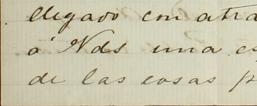 llegado con atra
á Vds una c
de las cosas p